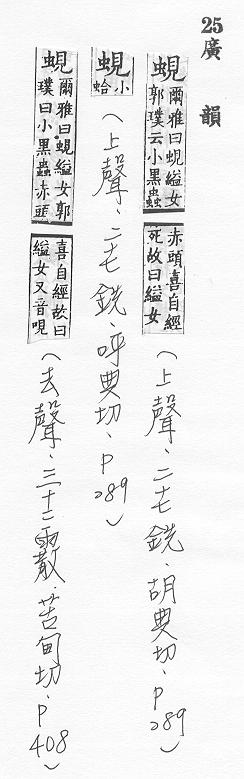 25 廣韻
蜆 爾雅曰蜆縊女郭璞云小黑蟲赤頭喜自經死故曰縊女(上聲、二七銑、胡典切、P289)
蜆 小蛤(上聲、二七銑、呼典切、P289)
蜆 爾雅曰蜆縊女郭璞曰小黑蟲赤頭喜自經故曰縊女又音哯(去聲、三十二霰、苦甸切、P408)